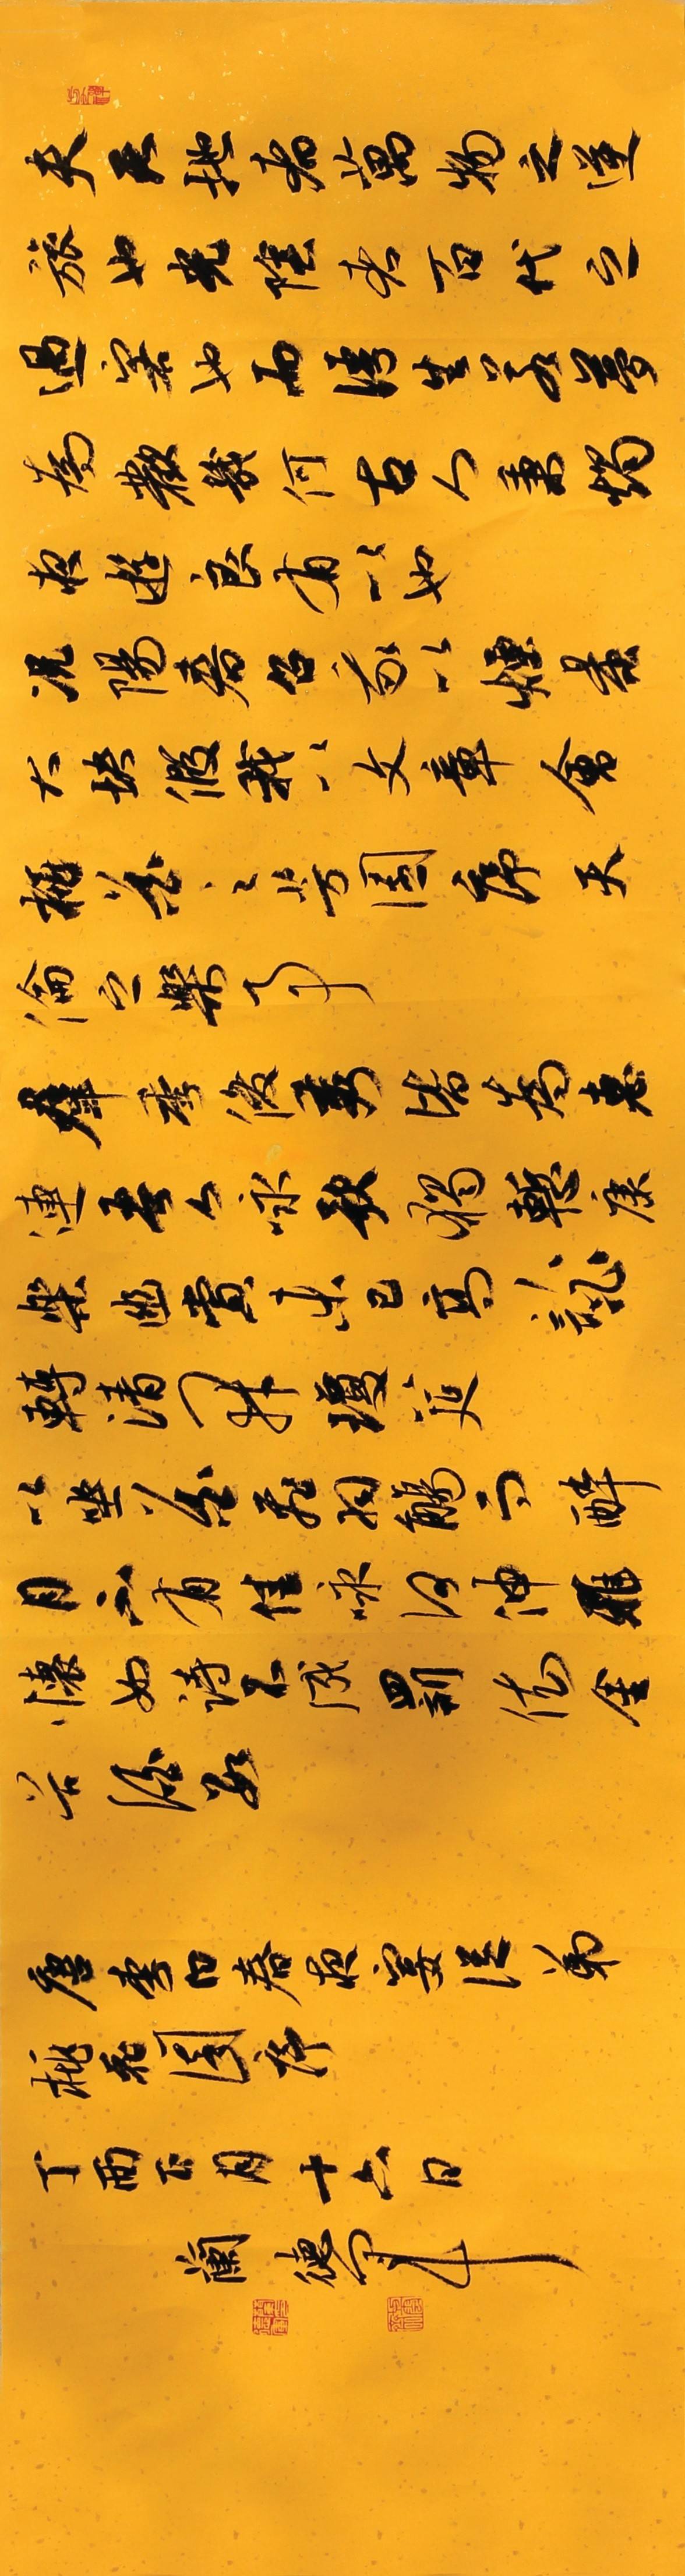 夫天地者萬物之逆
旅也光陰者百代之
過客也而浮生若夢
為歡幾何古人秉燭
夜遊良有以也
況陽春召我以煙景
大塊假我以文章會
桃花之芳園序天
倫之樂事
群季俊秀皆為惠
連吾人咏歌獨慙康
樂幽賞未已高談
轉清開瓊筵
以坐花飛羽觴而醉
月不有佳咏何伸雅
懷如詩不成罰依金
谷酒數
唐李白春夜宴從弟
桃花園序
丁酉正月十六日
蘭德